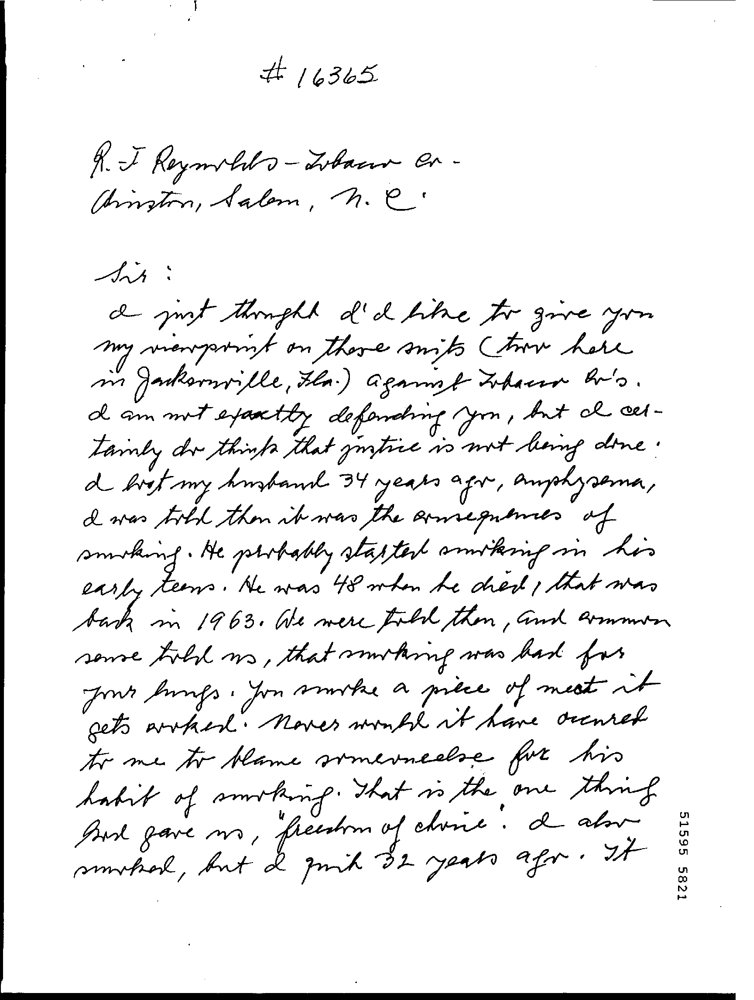 # 16365
R. J Reynolds - Tobacco Co -
Winston, Salem, N. C.
Sir :
I just thought I'd like to give you
my viewpoint on these suits (two here
in Jacksonville, Fla.) against Tobacco Co's.
I am not exactly defending you, but I cer-
tainly do think that justice is not being done.
I lost my husband 34 years ago, emphysema,
I was told then it was the consequences of
smoking. He probably started smoking in his
early teens. He was 48 when he died, that was
back in 1963. We were told then, and common
sense told us, that smoking was bad for
your lungs. You smoke a piece of meat it
gets cooked. Never would it have occured
to me to blame someoneelse for his
habit of smoking. That is the one thing
God gave us, "freedom of choice". I also
smoked, but I quit 32 years ago. It
51595 5821